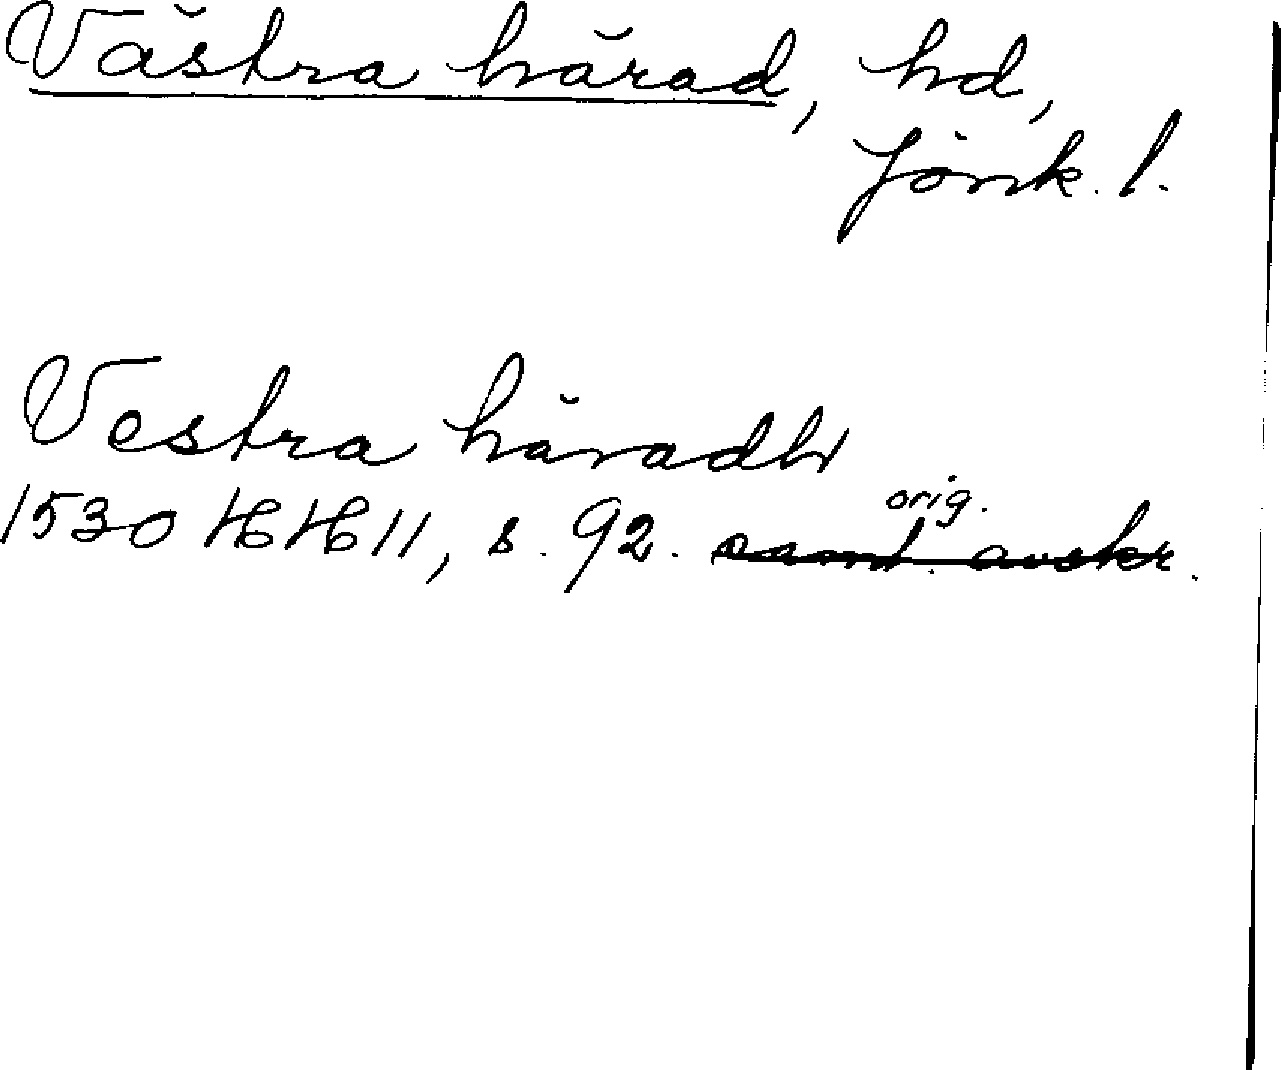 Västra härad, hd,
Jönk. l.
Vestra häradh
orig.
1530 HH 11, s. 92. samt. avskr.